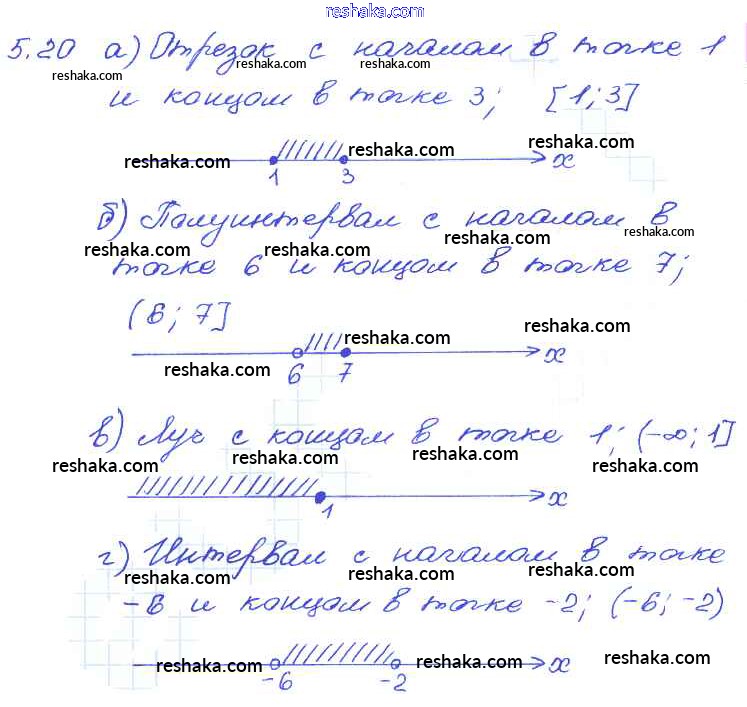 reshaka.com
5.20 а) Отрезок с началом в точке 1
reshaka.com reshaka.com reshaka.com
и концом в точке 3; [1; 3]
reshaka.com
reshaka.com reshaka.com x
1 3
б) Полуинтервал с началом в
reshaka.com reshaka.com reshaka.com reshaka.com
точке 6 и концом в точке 7;
(6; 7]
reshaka.com reshaka.com
x
reshaka.com 6 7
в) Луч с концом в точке 1; (-∞; 1]
reshaka.com reshaka.com reshaka.com reshaka.com
x
1
reshaka.com reshaka.com
г) Интервал с началом в точке
reshaka.com reshaka.com reshaka.com
-6 и концом в точке -2; (-6; -2)
reshaka.com reshaka.com
reshaka.com reshaka.com x reshaka.com
-6 -2